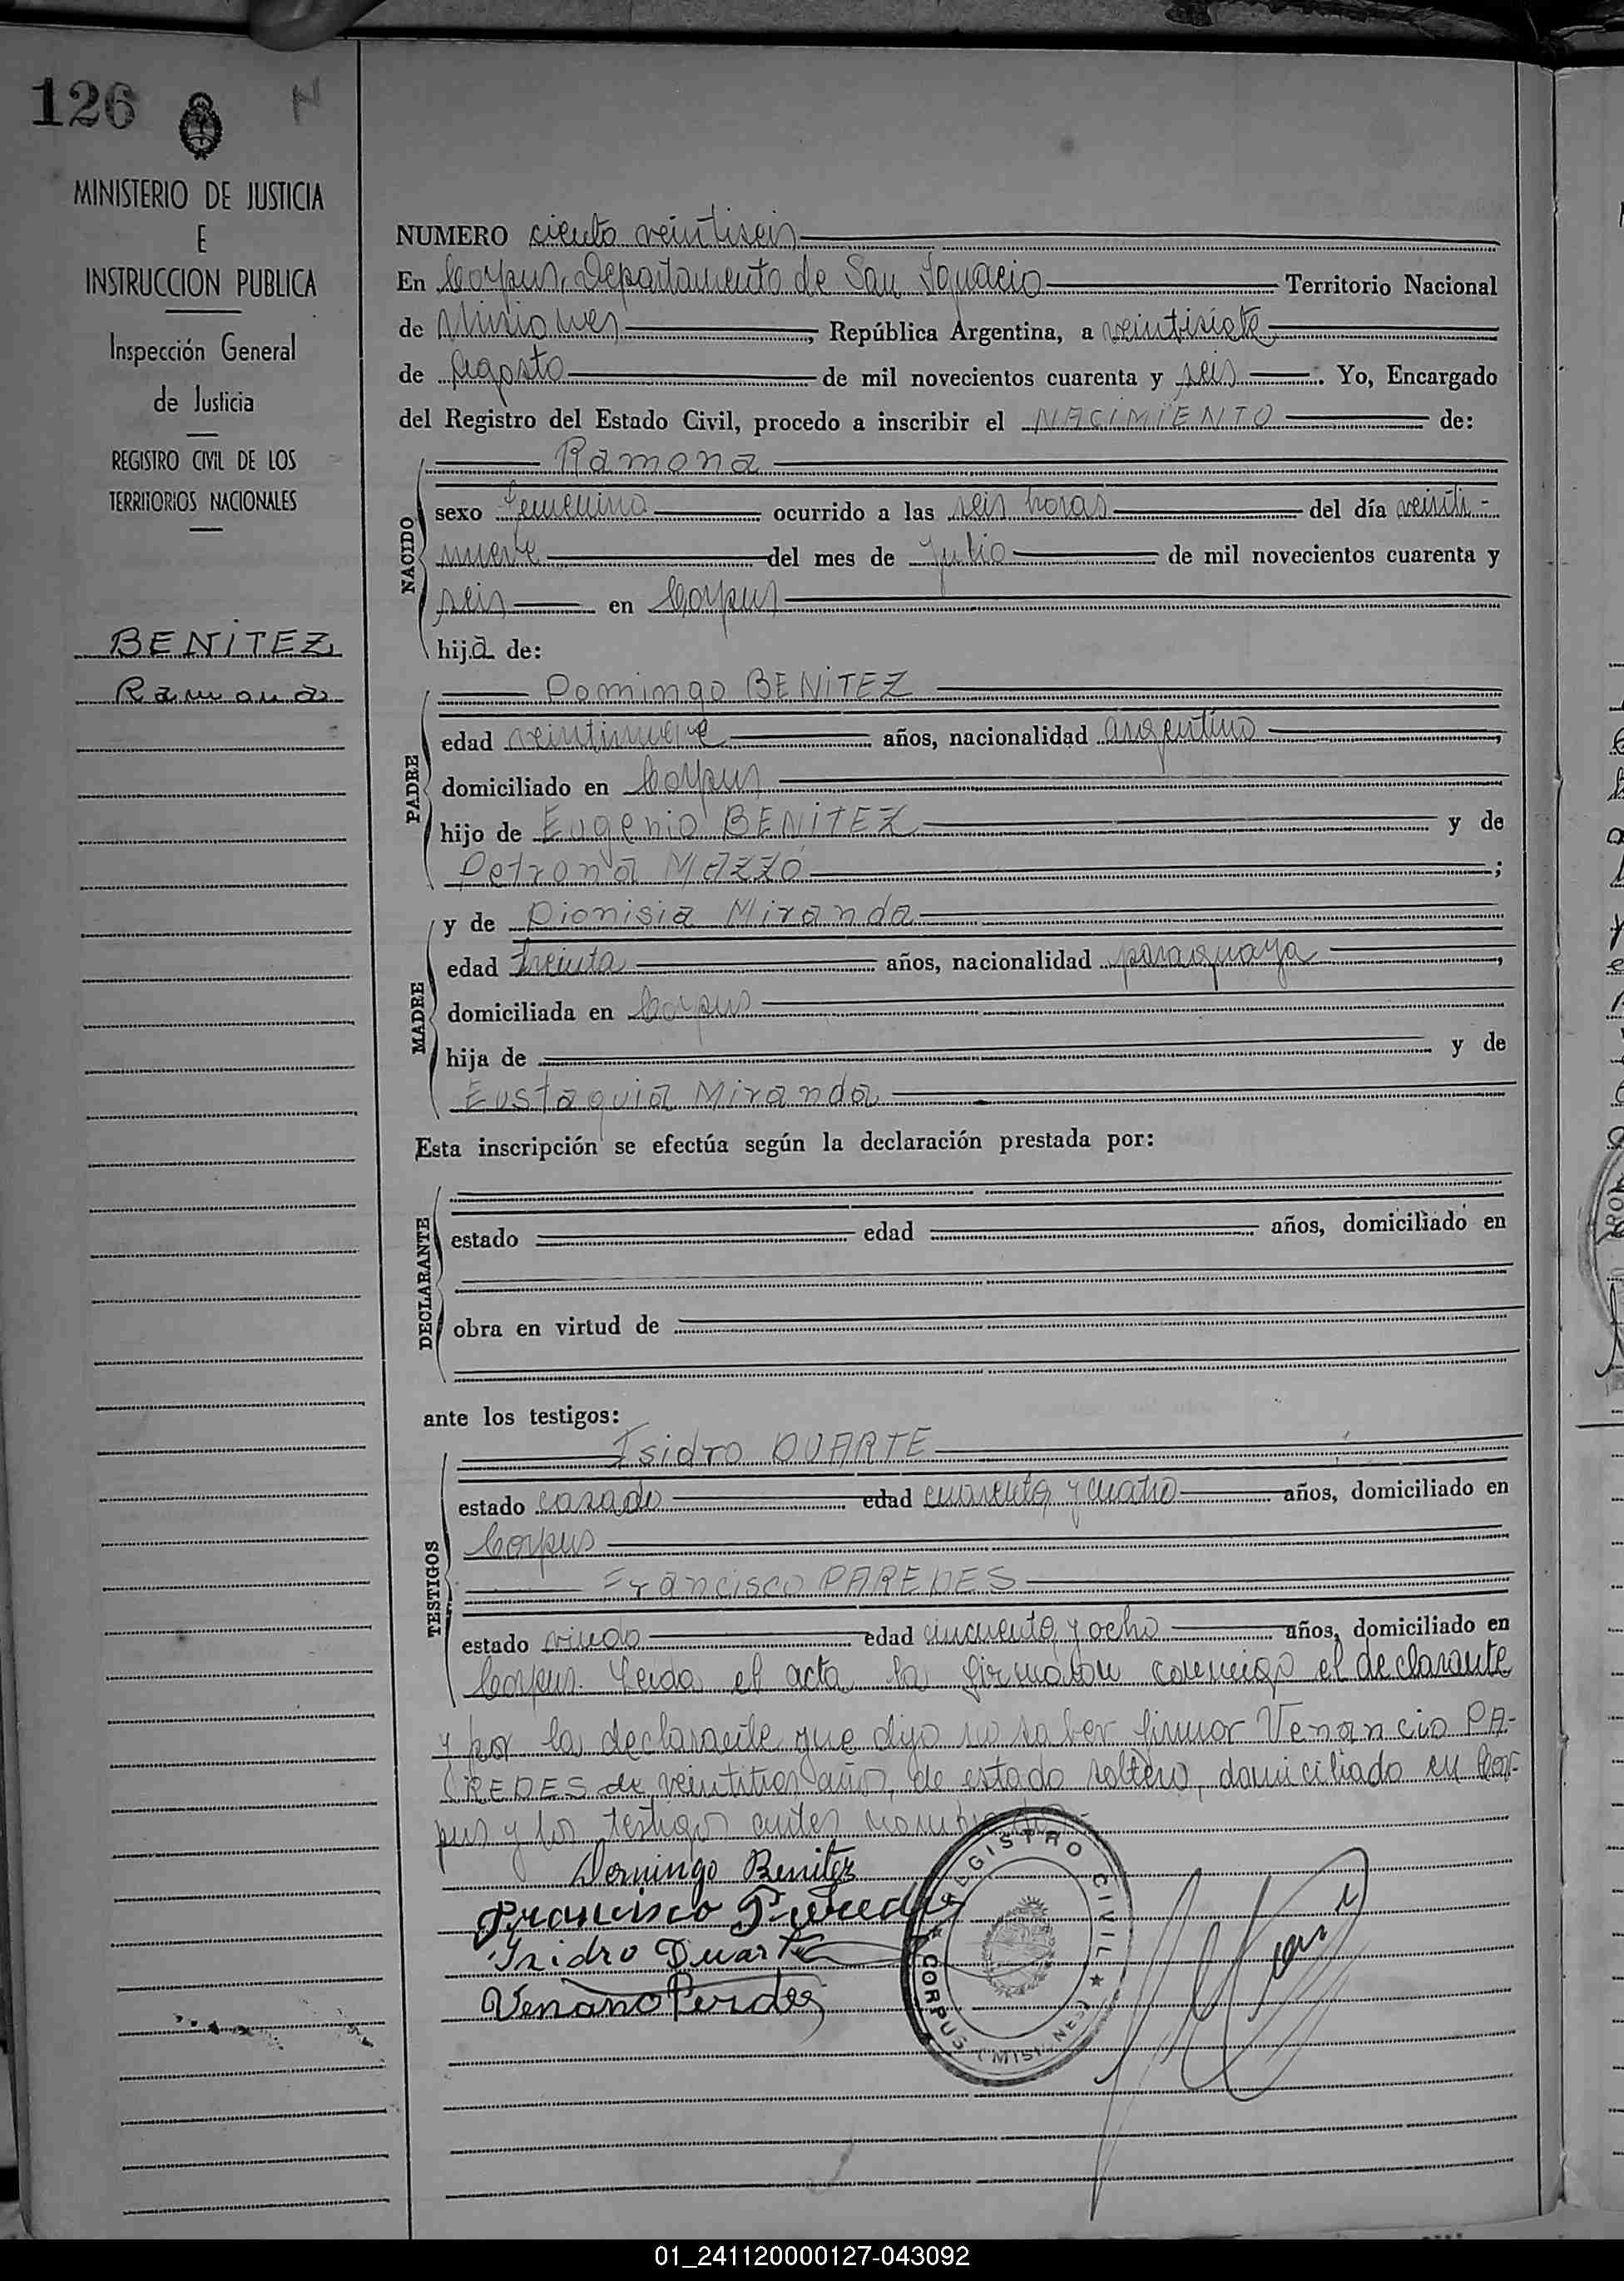 126
N
MINISTERIO DE JUSTICIA
E
INSTRUCCION PUBLICA
Inspección General
de Justicia
REGISTRO CIVIL DE LOS
TERRITORIOS NACIONALES
BENITEZ
Ramona
NUMERO ciento veintiseis
En Corpus, Departamento de San Ignacio Territorio Nacional
de Misiones, República Argentina, a veintisiete
de Agosto de mil novecientos cuarenta y seis. Yo, Encargado
del Registro del Estado Civil, procedo a inscribir el NACIMIENTO de:
NACIDO
Ramona
sexo femenino ocurrido a las seis horas del día veinti-
nueve del mes de Julio de mil novecientos cuarenta y
seis en Corpus
hija de:
PADRE
Domingo BENITEZ
edad veintinueve años, nacionalidad argentino,
domiciliado en Corpus
hijo de Eugenio BENITEZ y de
Petrona MAZZO;
MADRE
y de Dionisia Miranda
edad treinta años, nacionalidad paraguaya,
domiciliada en Corpus
hija de y de
Eustaquia Miranda
Esta inscripción se efectúa según la declaración prestada por:
DECLARANTE
estado edad años, domiciliado en
obra en virtud de
ante los testigos:
TESTIGOS
Isidro DUARTE
estado casado edad cuarenta y cuatro años, domiciliado en
Corpus
Francisco PAREDES
estado viudo edad cincuenta y ocho años, domiciliado en
Corpus. Leida el acta la firmaron conmigo el declarante
y por la declarante que dijo no saber firmar Venancio PA-
REDES de veintitres años, de estado soltero, domiciliado en Cor-
pus y los testigos antes nombrados.-
Domingo Benitez
Francisco Paredes
Isidro Duarte
Venancio Perdes
REGISTRO CIVIL
CORPUS (MISIONES)
01_241120000127-043092